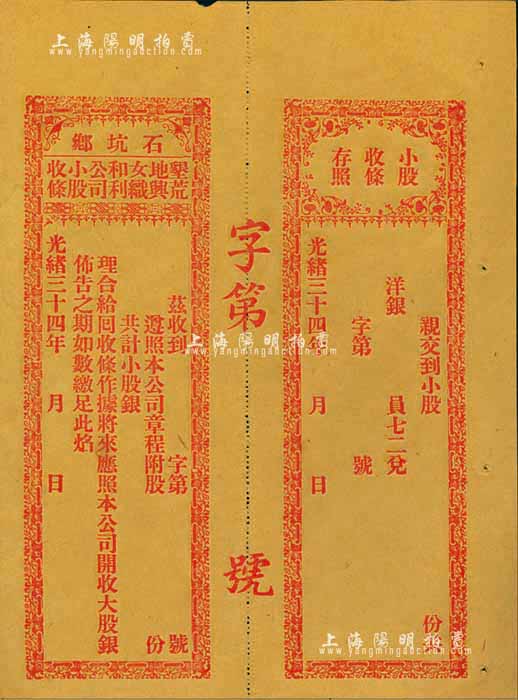 上海陽明拍賣
www.yangmingauction.com
小股
收條
存照
親交到小股 份
洋銀 員七二兌
字第 號
光緒三十四年 月 日
字第 號
石坑鄉
墾荒
地興
女織
和利
公司
小股
收條
茲收到 字第 號
遵照本公司章程附股 份
共計小股銀
理合給回收條作據將來應照本公司開收大股銀
佈告之期如數繳足此炤
光緒三十四年 月 日
上海陽明拍賣
www.yangmingauction.com
上海陽明拍賣
www.yangmingauction.com